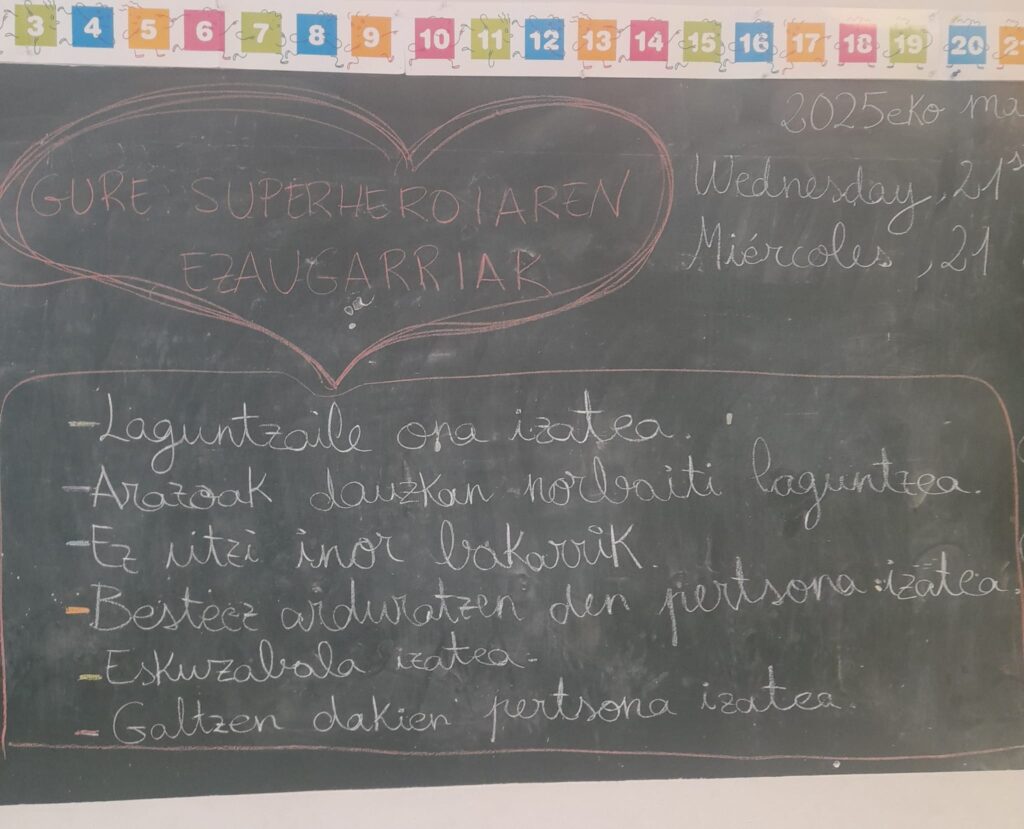 3 4 5 6 7 8 9 10 11 12 13 14 15 16 17 18 19 20 21
2025eko ma
Wednesday, 21s
Miércoles, 21
GURE SUPERHEROIAREN
EZAUGARRIAK
-Laguntzaile ona izatea.
-Arazoak dauzkan norbaiti laguntzea.
-Ez utzi inor bakarrik.
-Besteez arduratzen den pertsona izatea.
-Eskuzabala izatea.
-Galtzen dakien pertsona izatea.